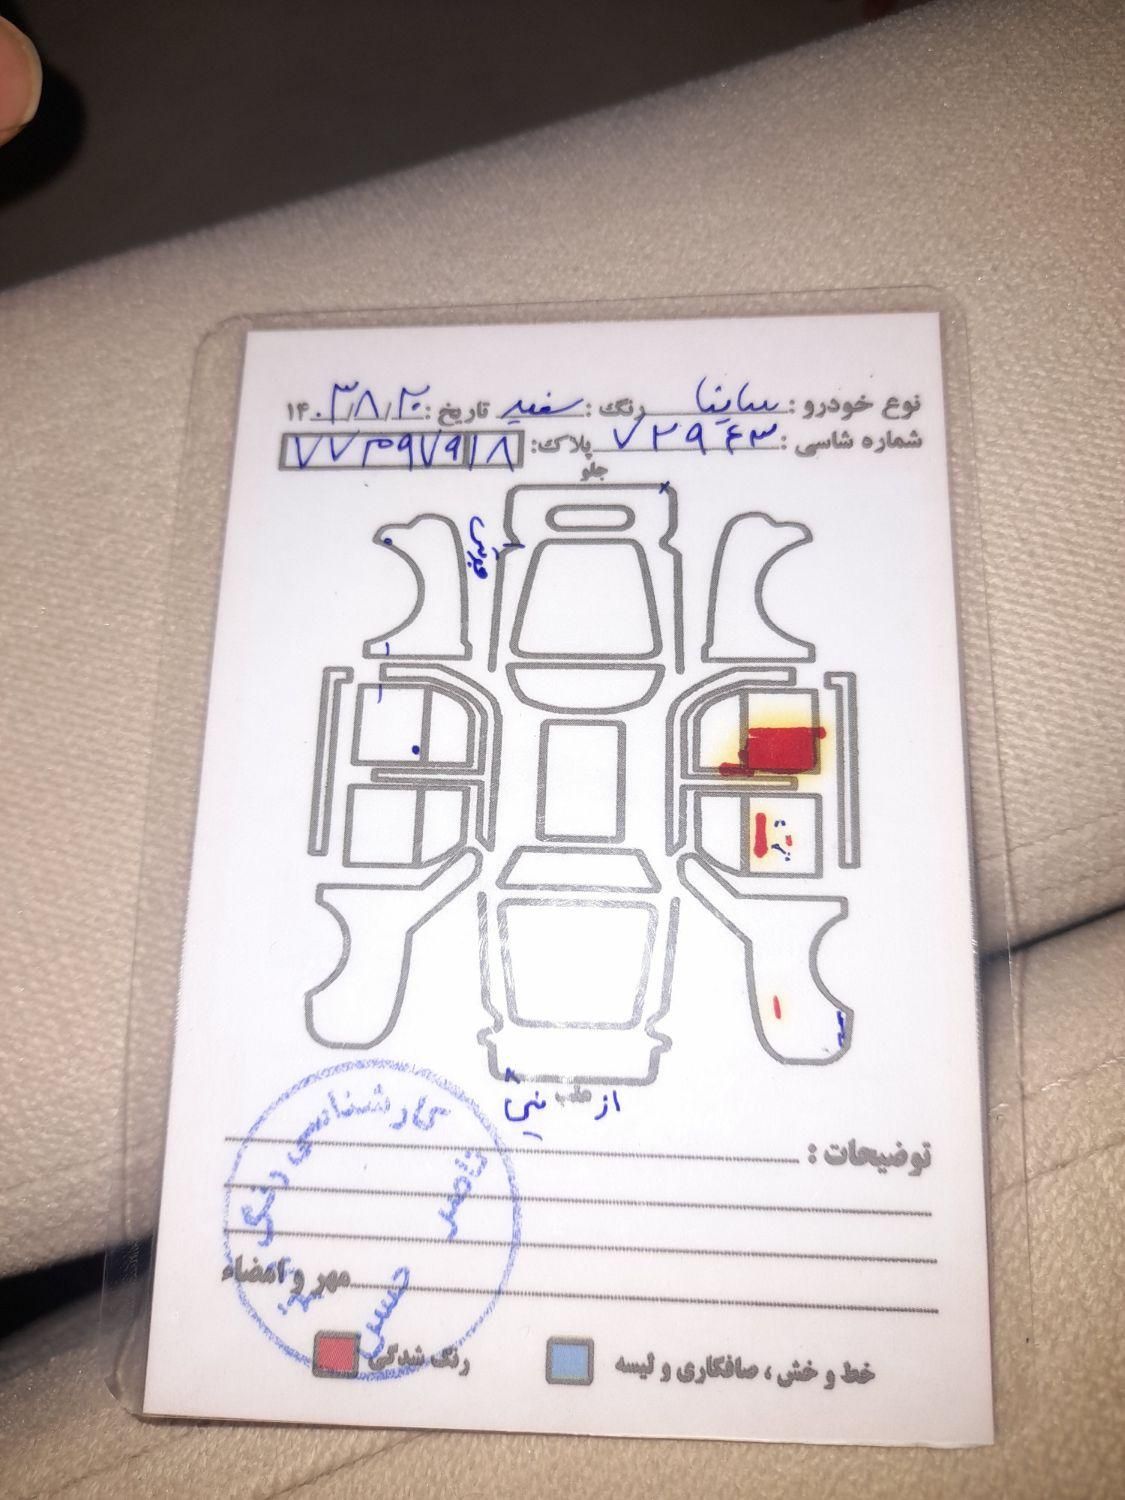 نوع خودرو: ساینا رنگ: سفید تاریخ: ۱۴۰۳/۸/۲۰
شماره شاسی: ۷۲۹۴۳ پلاک:
جلو
عقب
از
توضیحات:
کارشناسی رنگ
مهر و امضاء
خط و خش، صافکاری و لیسه
رنگ شدگی